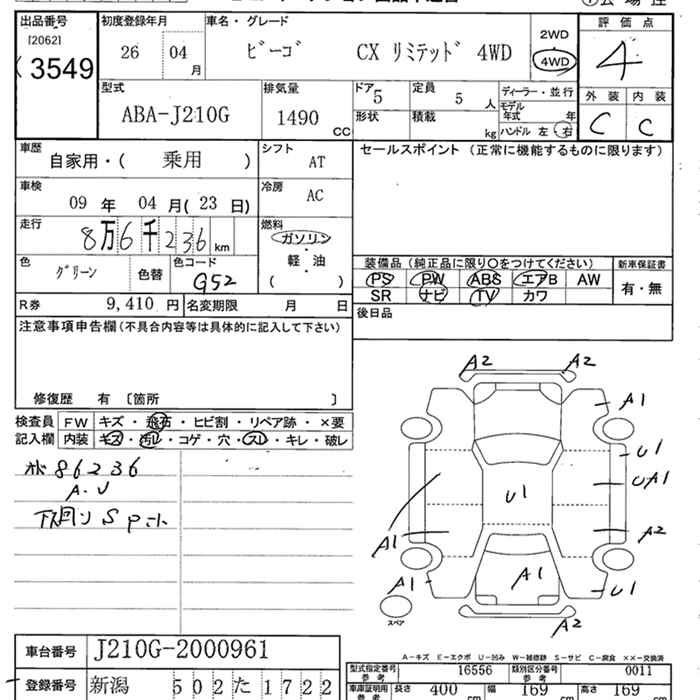 出品番号 初度登録年月 車名・グレード 評価点
[2062] 26 04月 ビーゴ CX リミテッド 4WD 2WD 4
3549 4WD
型式 排気量 ドア 定員 ディーラー・並行 外装 内装
ABA-J210G 1490 CC 5 5人 モデル年式 年 C C
形状 積載 kg ハンドル 左・右
車歴 自家用・( 乗用 ) シフト AT セールスポイント (正常に機能するものに限ります)
車検 09年 04月(23日) 冷房 AC
走行 8万6千236km 燃料 ガソリン・軽・油 ( )
装備品(純正品に限り〇をつけてください) 新車保証書
色 グリーン 色替 色コード G52 PS PW ABS エアB AW 有・無
SR ナビ TV カワ
R券 9,410円 名変期限 月 日 後日品
注意事項申告欄(不具合内容等は具体的に記入して下さい)
修復歴 有 〔箇所 〕
検査員 FW キズ・飛石・ヒビ割・リペア跡・×要
記入欄 内装 キズ・汚レ・コゲ・穴・スレ・キレ・破レ
86236
A.U
下回り S
A2 A2
A1
U1
UA1
U1
A2
A1
A1 A1 U1
スペア
A2
車台番号 J210G-2000961
A-キズ E-エクボ U-凹み W-補修跡 S-サビ C-腐食 ××-交換済
型式指定番号 参考 16556 類別区分番号 参考 0011
登録番号 新潟 502た1722
車庫証明用 参考 長さ 400 cm 幅 169 cm 高さ 169 cm